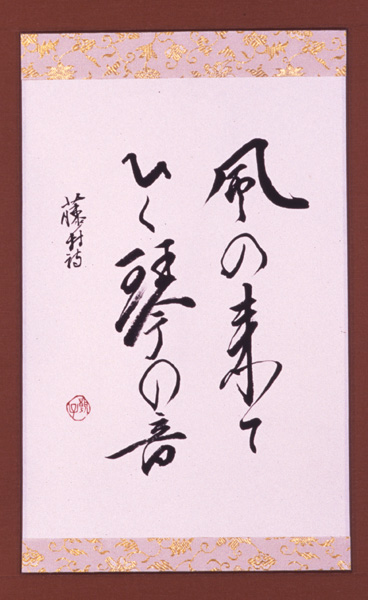 風の来て
ひく琴の音
藤村詩